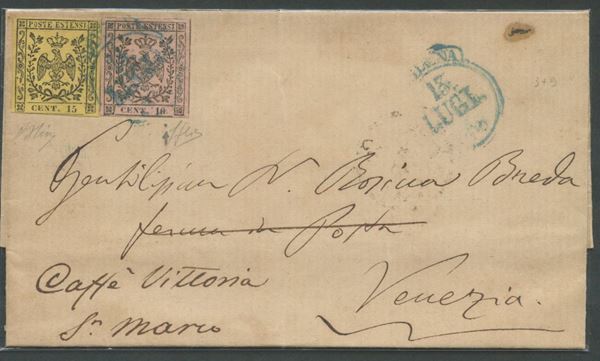 POSTE ESTENSI POSTE ESTENSI
CENT. 15 CENT. 10
13
LUGL
3+9
Rosina Breda
ferma in Posta
Caffè Vittoria
Sn. Marco
Venezia.